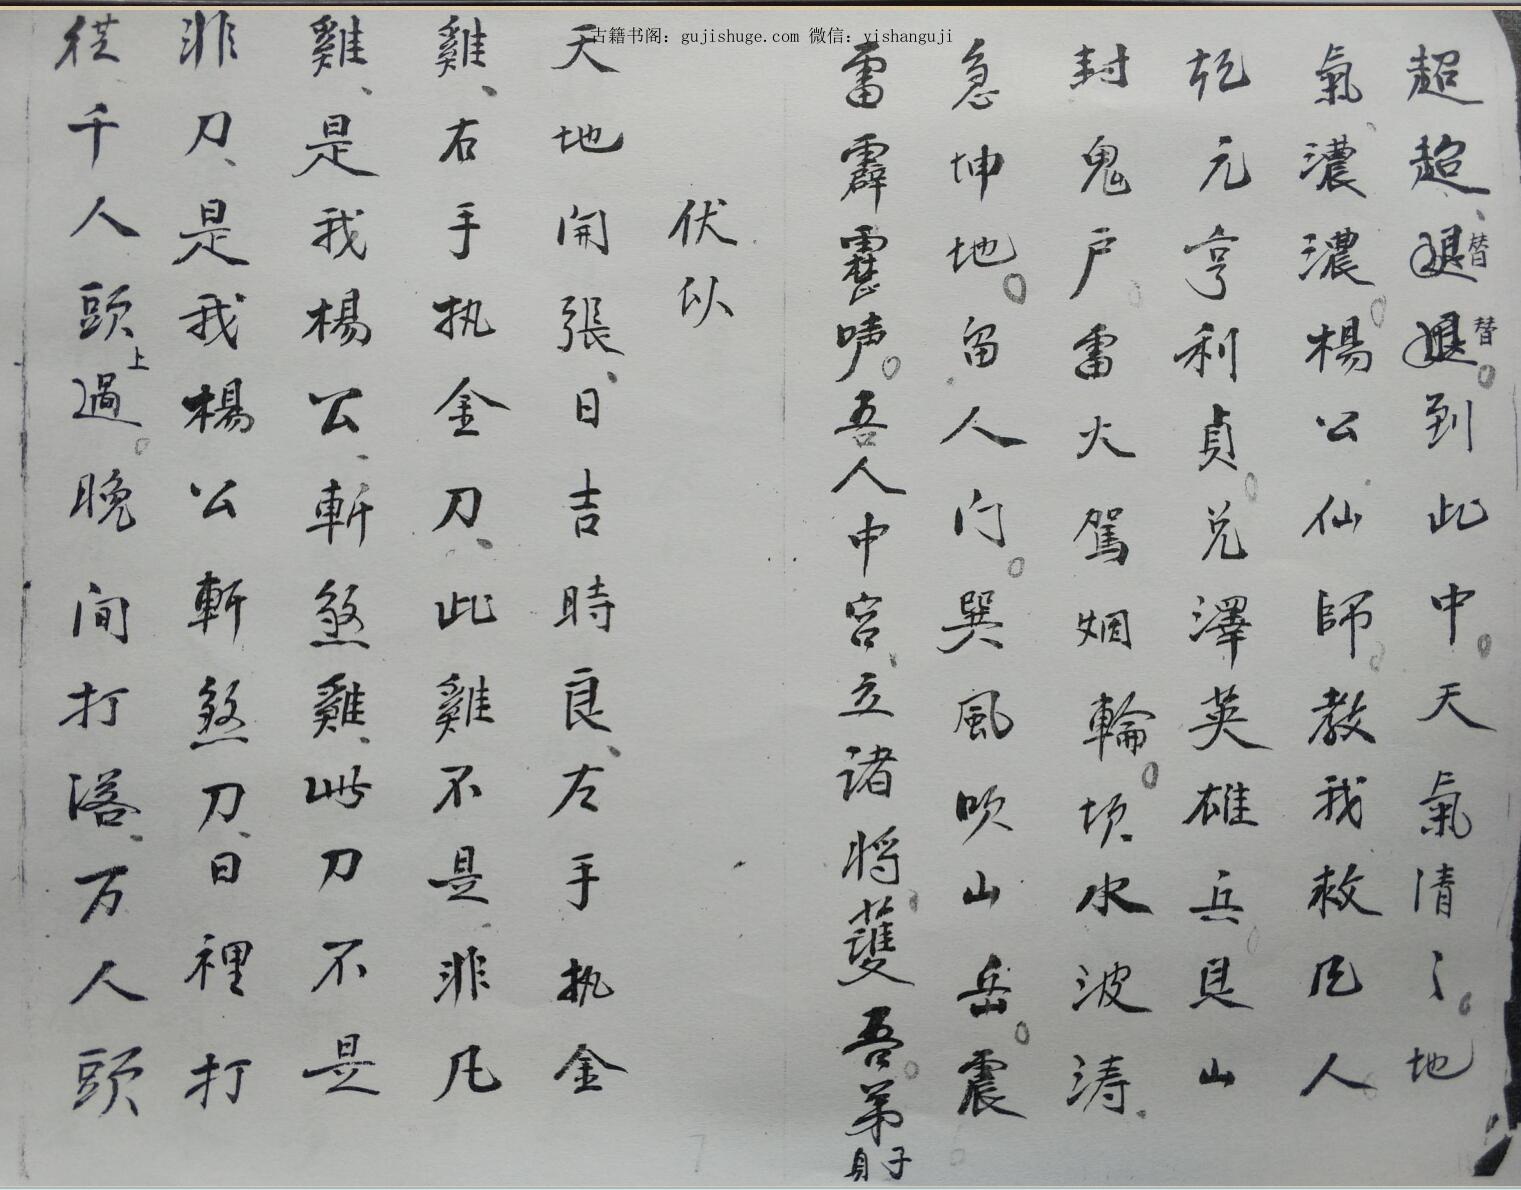 古籍书阁：gujishuge.com 微信：yishanguji
超超退替退替到此中天氣清〻地
氣濃濃楊公仙師教我救凡人
乾元亨利貞兌澤英雄兵艮山
封鬼户雷火駕烟輪坎水波涛
急坤地留人门巽風吹山岳震
雷霹靂咦吾人中宫立諸将護吾弟子身
伏以
天地開張日吉時良左手执金
雞右手执金刀此雞不是非凡
雞是我楊公斬煞雞此刀不是
非刀是我楊公斬煞刀日裡打
從千人頭上過晚间打落万人頭